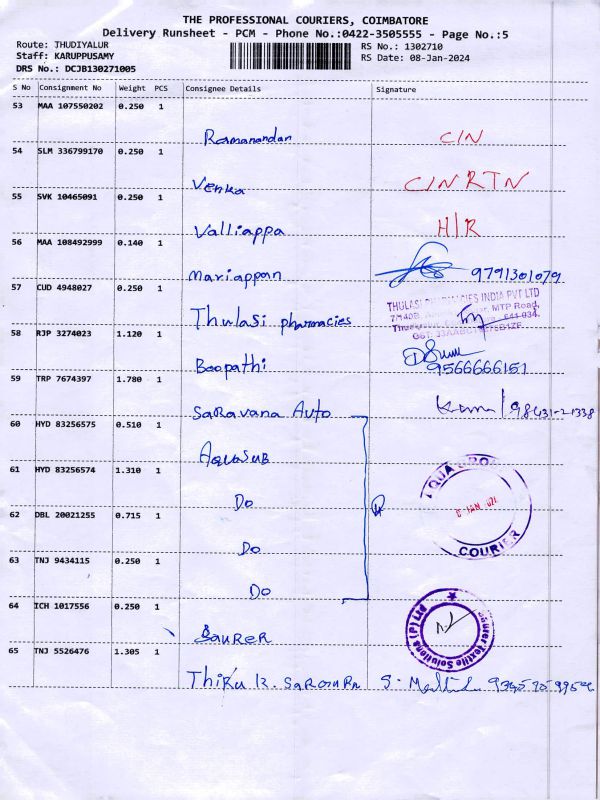 THE PROFESSIONAL COURIERS, COIMBATORE
Delivery Runsheet - PCM - Phone No.:0422-3505555 - Page No.:5
Route: THUDIYALUR RS No.: 1302710
Staff: KARUPPUSAMY RS Date: 08-Jan-2024
DRS No.: DCJB130271005
S No Consignment No Weight PCS Consignee Details Signature
53 MAA 107550202 0.250 1
Ramanandan C/N
54 SLM 336799170 0.250 1
Venka C/N RTN
55 SVK 10465091 0.250 1
Valliappa H/R
56 MAA 108492999 0.140 1
Mariappan 9791301079
57 CUD 4948027 0.250 1
Thulasi pharmacies
THULASI PHARMACIES INDIA PVT LTD
MTP Road,
641 034.
58 RJP 3274023 1.120 1
Boopathi 9566666151
59 TRP 7674397 1.780 1
Saravana Auto 98431-21338
60 HYD 83256575 0.510 1
AQUASUB
61 HYD 83256574 1.310 1
Do
62 DBL 20021255 0.715 1
Do
63 TNJ 9434115 0.250 1
Do
COURIER
64 ICH 1017556 0.250 1
SAURER
Textile Solutions (P) Ltd
65 TNJ 5526476 1.305 1
Thiru K.